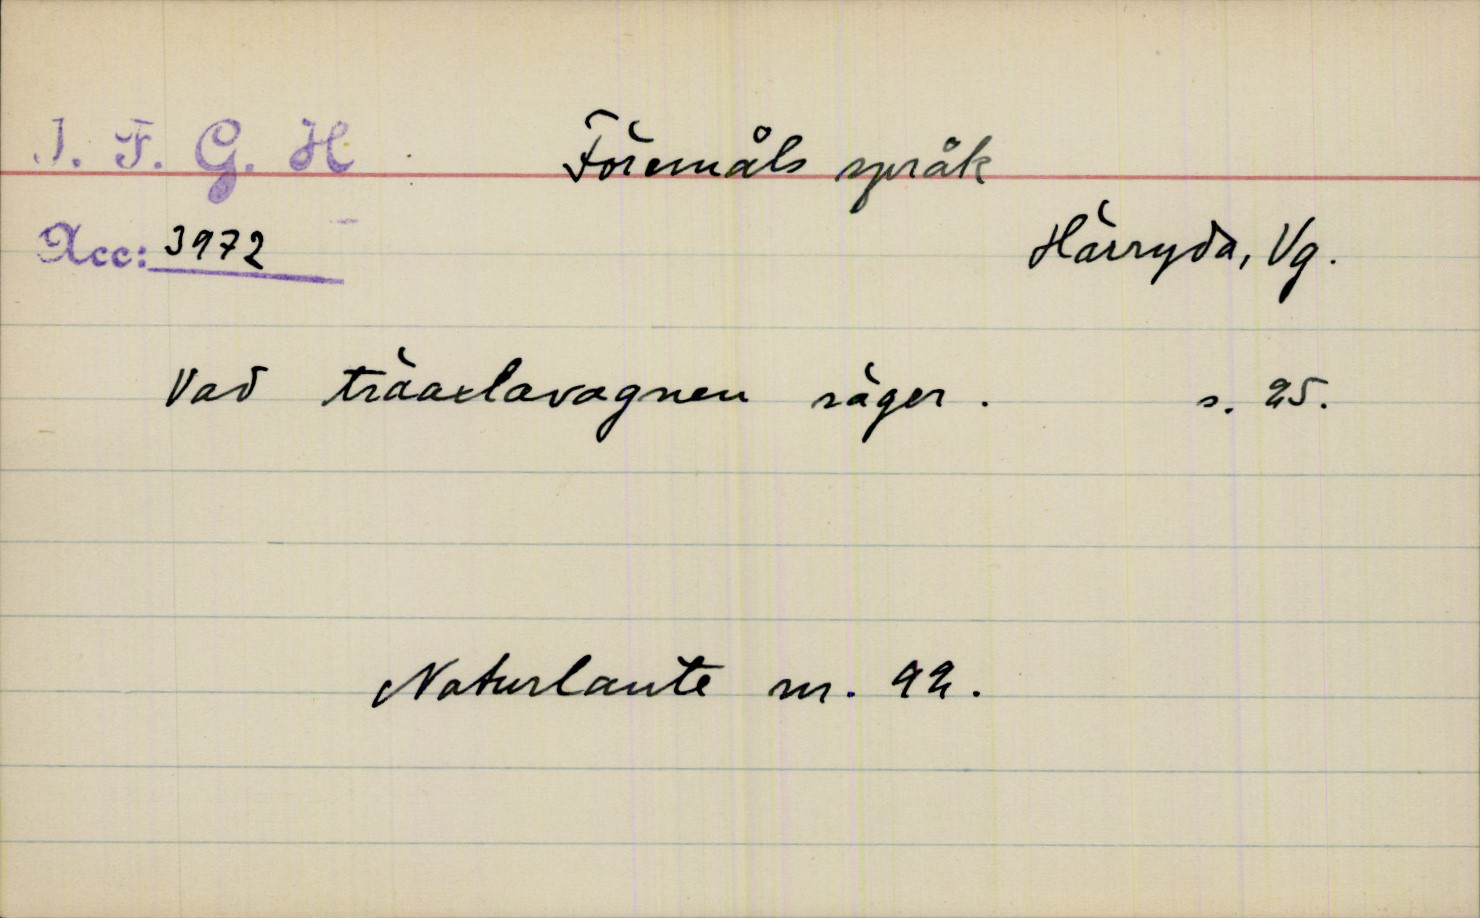 I. F. G. H
Föremåls språk
Acc: 3972
Härryda, Vg.
Vad träaxlavagnen säger. s. 25.
Naturlaute nr. 92.